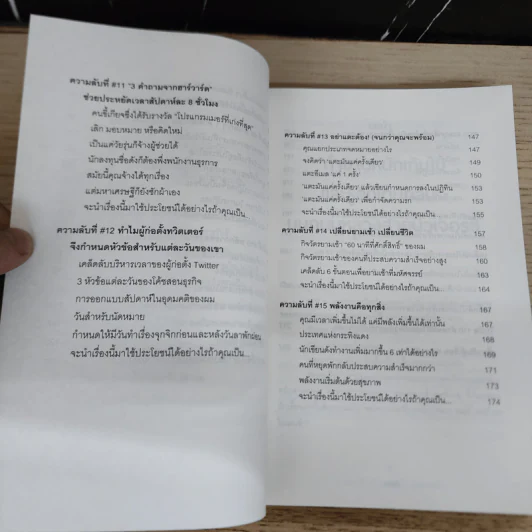 ความลับที่ #11 "3 คำถามจากฮาร์วาร์ด"
ช่วยประหยัดเวลาสัปดาห์ละ 8 ชั่วโมง
คนขี้เกียจซึ่งได้รับรางวัล "โปรแกรมเมอร์ที่เก่งที่สุด"
เลิก มอบหมาย หรือคิดใหม่
เป็นแค่วัยรุ่นก็จ้างผู้ช่วยได้
นักลงทุนชื่อดังก็ต้องพึ่งพนักงานธุรการ
สมัยนี้คุณจ้างได้ทุกเรื่อง
แต่มหาเศรษฐีก็ยังซักผ้าเอง
จะนำเรื่องนี้มาใช้ประโยชน์ได้อย่างไรถ้าคุณเป็น...
ความลับที่ #12 ทำไมผู้ก่อตั้งทวิตเตอร์
จึงกำหนดหัวข้อสำหรับแต่ละวันของเขา
เคล็ดลับบริหารเวลาของผู้ก่อตั้ง Twitter
3 หัวข้อแต่ละวันของโค้ชสอนธุรกิจ
การออกแบบสัปดาห์ในอุดมคติของผม
วันสำหรับนัดหมาย
กำหนดให้มีวันทำเรื่องจุกจิกก่อนและหลังวันลาพักผ่อน
จะนำเรื่องนี้มาใช้ประโยชน์ได้อย่างไรถ้าคุณเป็น...
ความลับที่ #13 อย่าแตะต้อง! (จนกว่าคุณจะพร้อม) 147
คุณแยกประเภทจดหมายอย่างไร 147
จงคิดว่า 'แตะมันแค่ครั้งเดียว' 149
แตะอีเมล 'แค่ 1 ครั้ง' 150
'แตะมันแค่ครั้งเดียว' แล้วเขียนกำหนดการลงในปฏิทิน 153
'แตะมันแค่ครั้งเดียว' เพื่อกำจัดความรก 153
จะนำเรื่องนี้มาใช้ประโยชน์ได้อย่างไรถ้าคุณเป็น... 155
ความลับที่ #14 เปลี่ยนยามเช้า เปลี่ยนชีวิต 157
กิจวัตรยามเช้า "60 นาทีที่ศักดิ์สิทธิ์" ของผม 158
กิจวัตรยามเช้าของคนที่ประสบความสำเร็จอย่างสูง 160
เคล็ดลับ 6 ขั้นตอนเพื่อยามเช้าที่มหัศจรรย์ 163
จะนำเรื่องนี้มาใช้ประโยชน์ได้อย่างไรถ้าคุณเป็น... 164
ความลับที่ #15 พลังงานคือทุกสิ่ง 167
คุณมีเวลาเพิ่มขึ้นไม่ได้ แต่มีพลังเพิ่มขึ้นได้เท่านั้น 167
ประเทศแห่งกระทิงแดง 168
นักเขียนดังทำงานเพิ่มมากขึ้น 6 เท่าได้อย่างไร 169
คนที่หยุดพักกลับประสบความสำเร็จมากกว่า 171
พลังงานเริ่มต้นด้วยสุขภาพ 173
จะนำเรื่องนี้มาใช้ประโยชน์ได้อย่างไรถ้าคุณเป็น... 174